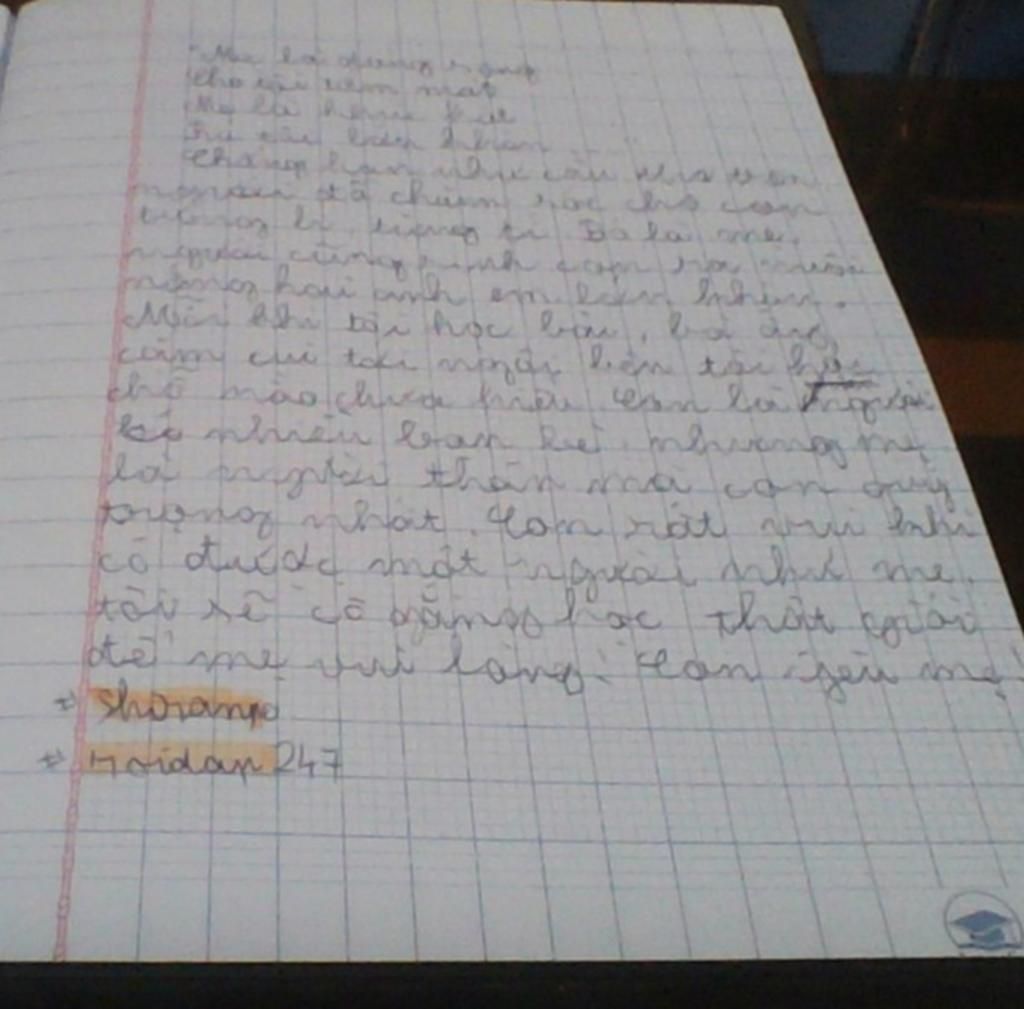 "Mẹ là dòng sông
Cho
Mẹ là
Chẳng hạn như câu thơ trên
người đã chăm sóc cho con
từng li, từng tí. Đó là mẹ.
người cũng sinh con ra nuôi
nấng hai anh em
Mỗi khi tôi học bài, bà ấy
cặm cụi tới ngồi bên tôi
chỗ nào chưa hiểu. Con là người
có nhiều bạn bè, nhưng mẹ
là người thân mà con quý
trọng nhất. Con rất vui khi
có được một người như mẹ.
tôi sẽ cố gắng học thật giỏi
để mẹ vui lòng. Con yêu mẹ!
⇒ Shoranp
⇒ Hoidap 247